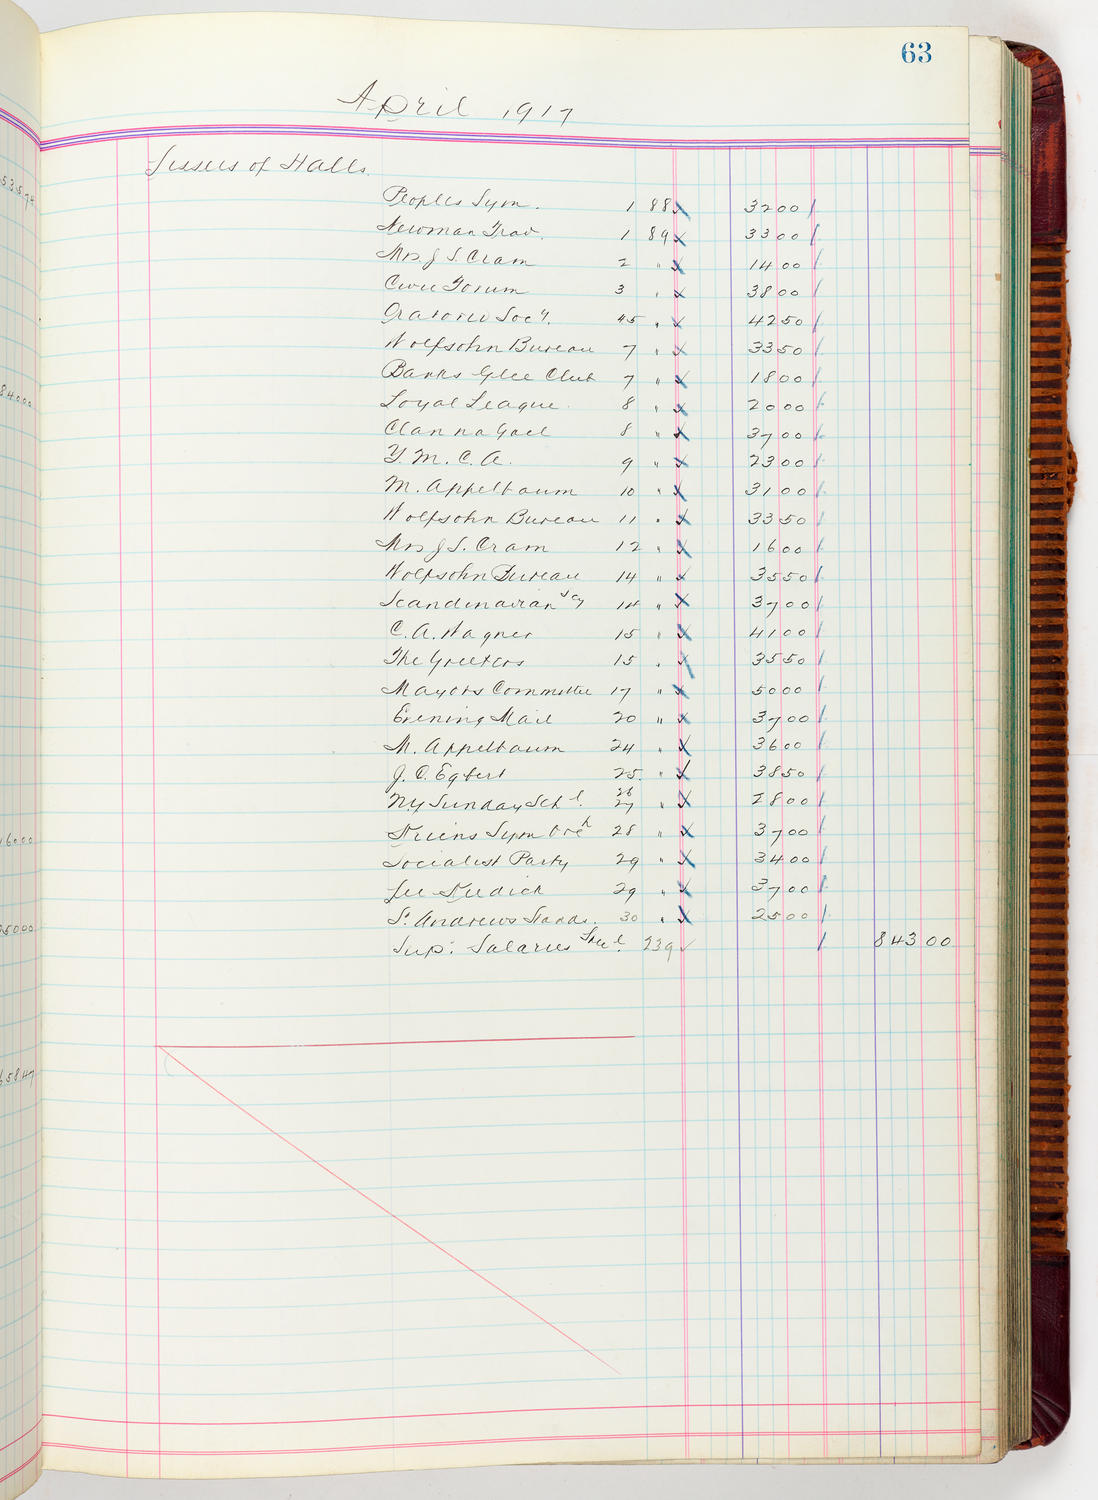 63
April 1917
Lessees of Halls.
Peoples Sym. 1 88 3200
Newman Trav. 1 89 3300
Mrs J S Cram 2 " 1400
Civic Forum 3 " 3800
Oratorio Socy. 45 " 4250
Wolfsohn Bureau 7 " 3350
Banks Glee Club 7 " 1800
Loyal League. 8 " 2000
Clan na Gael 8 " 3700
Y. M. C. A. 9 " 2300
M. Appelbaum 10 " 3100
Wolfsohn Bureau 11 " 3350
Mrs J S. Cram 12 " 1600
Wolfsohn Bureau 14 " 3550
Scandinavian Scy 14 " 3700
C. A. Wagner 15 " 4100
The Greeters 15 " 3550
Mayors Committee 17 " 5000
Evening Mail 20 " 3700
M. Appelbaum 24 " 3600
J. C. Egbert 25. " 3850
N.Y Sunday Schl. 26 27 " 2800
Sym Orch 28 " 3700
Socialist Party 29 " 3400
Lee 29 " 3700
St. Andrews 30 " 2500
Sup: Salaries 239 84300
53594
84000
16000
25000
65847